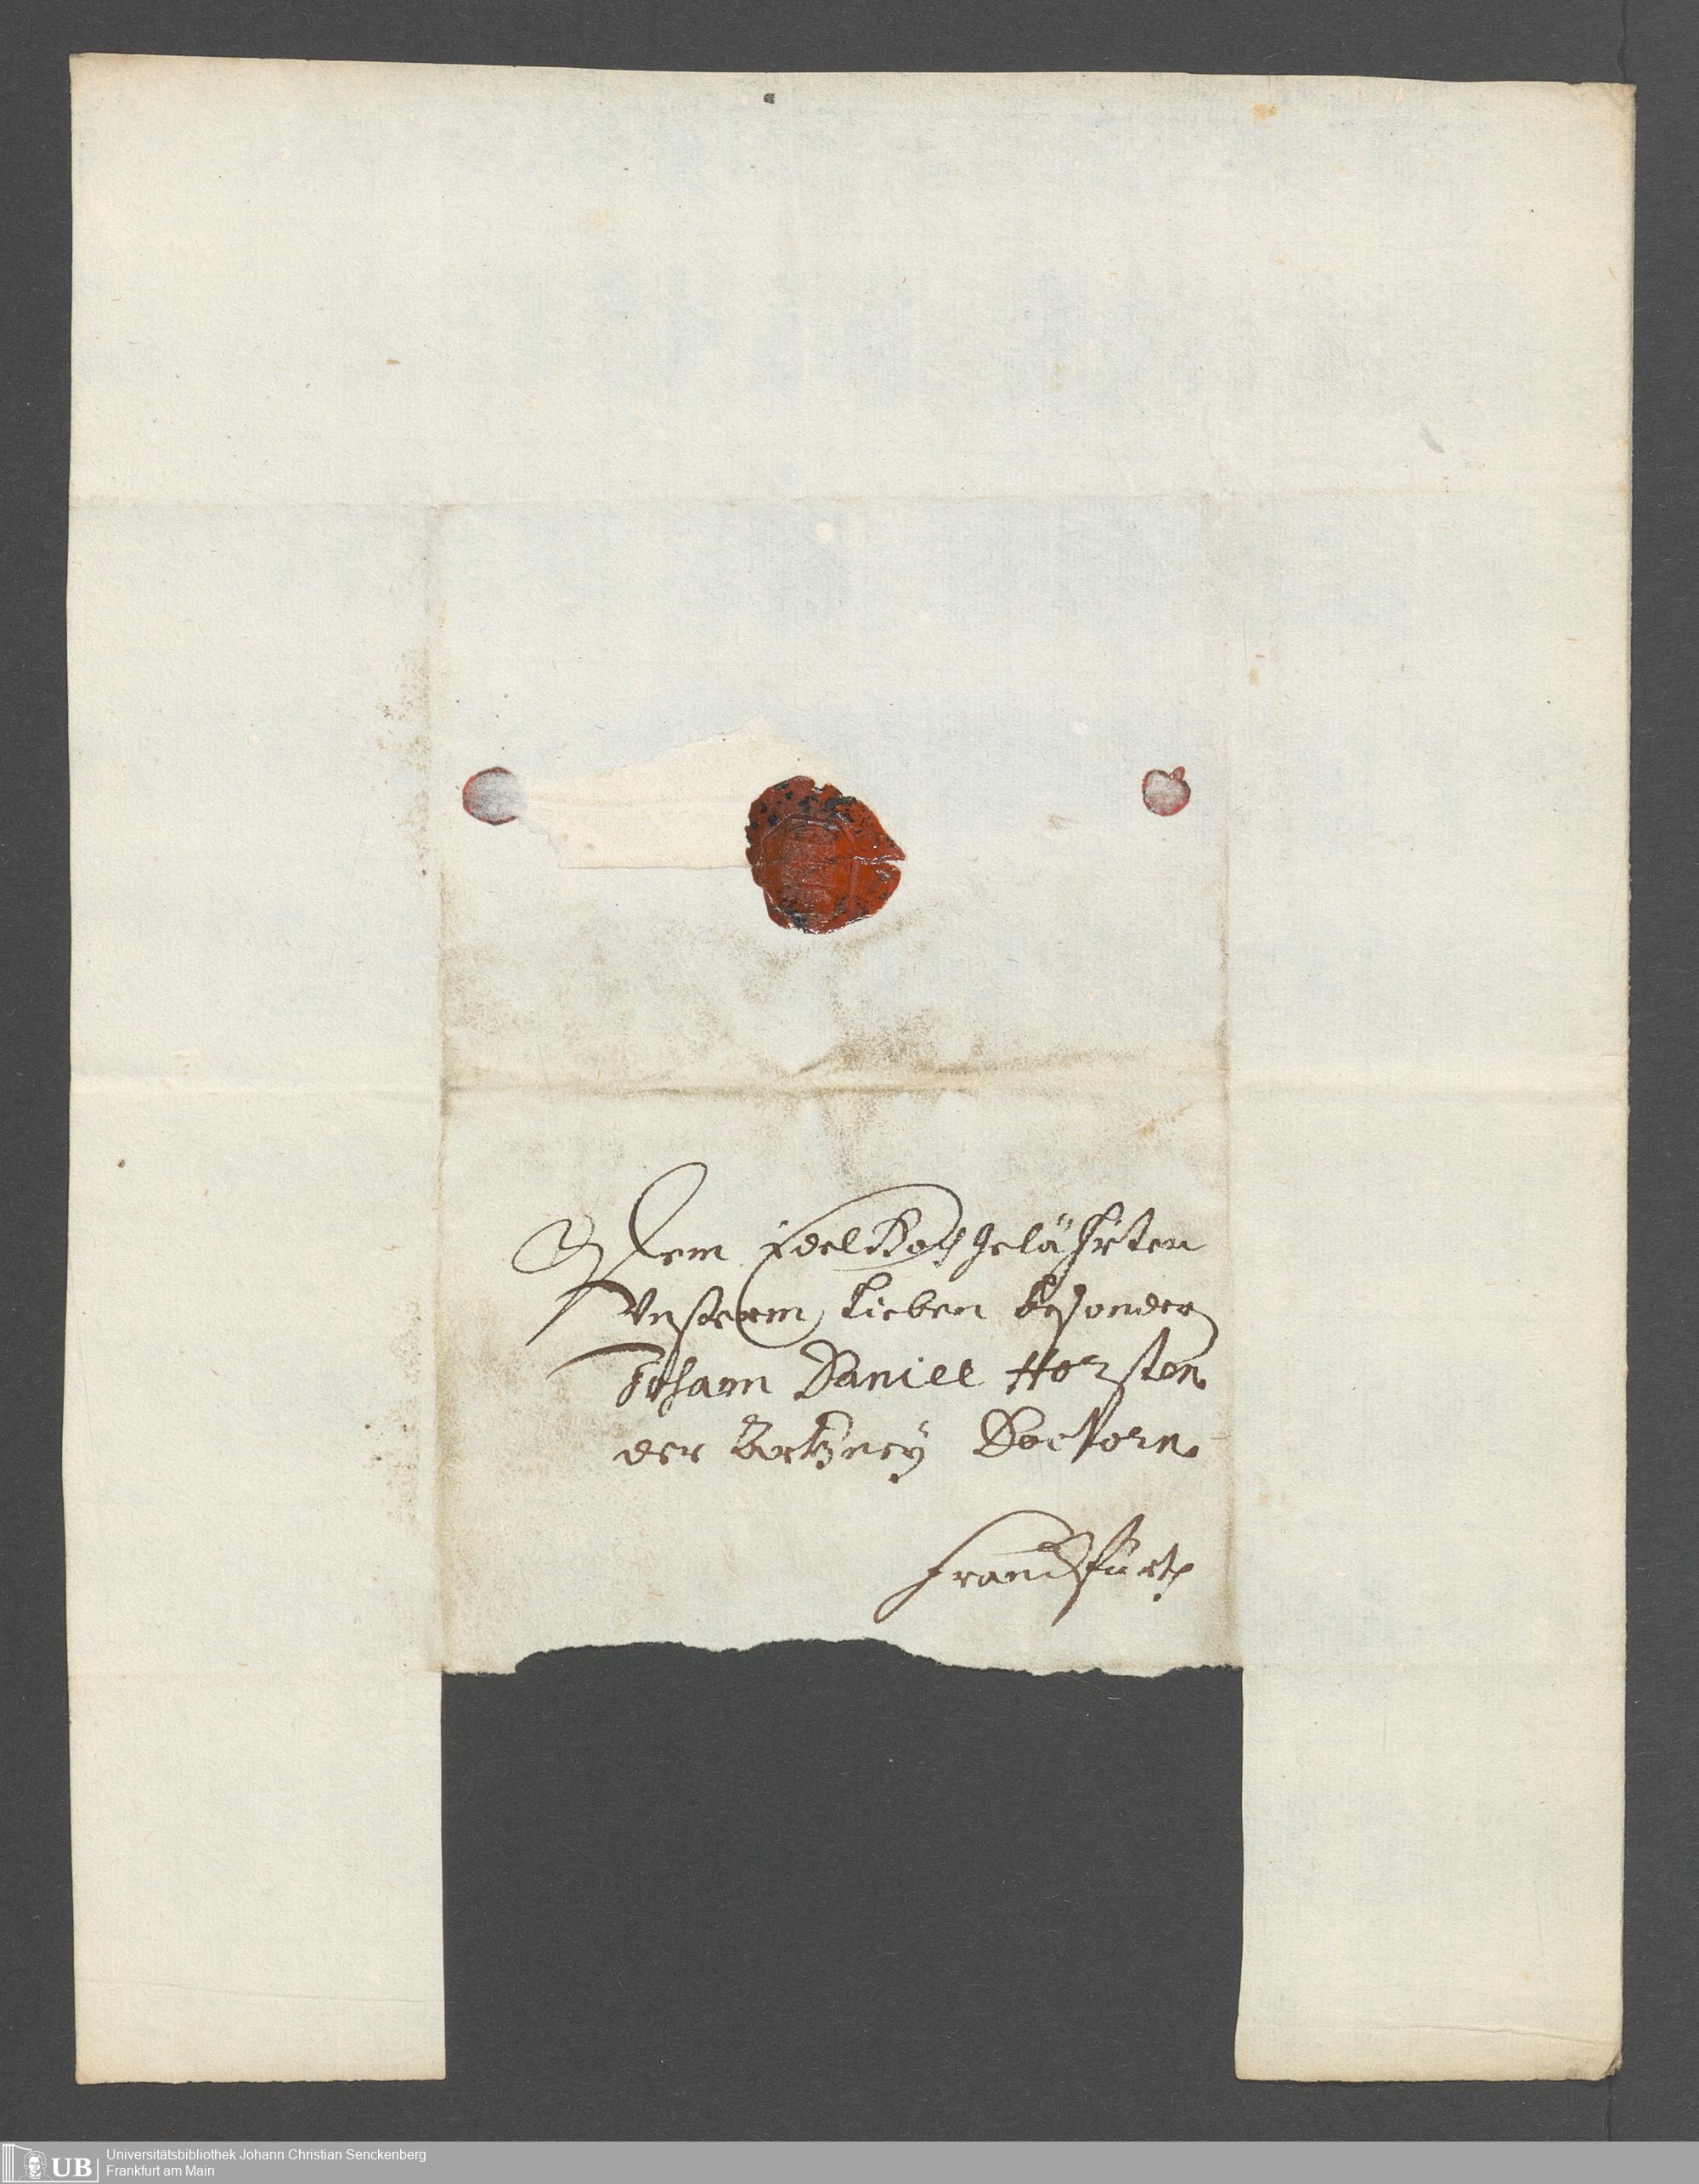 Dem Edel Hochgelährten
Unserm lieben besondern
Johann Daniell Horsten
der Artzney Doctorn
Franckfurth
UB
Universitätsbibliothek Johann Christian Senckenberg
Frankfurt am Main